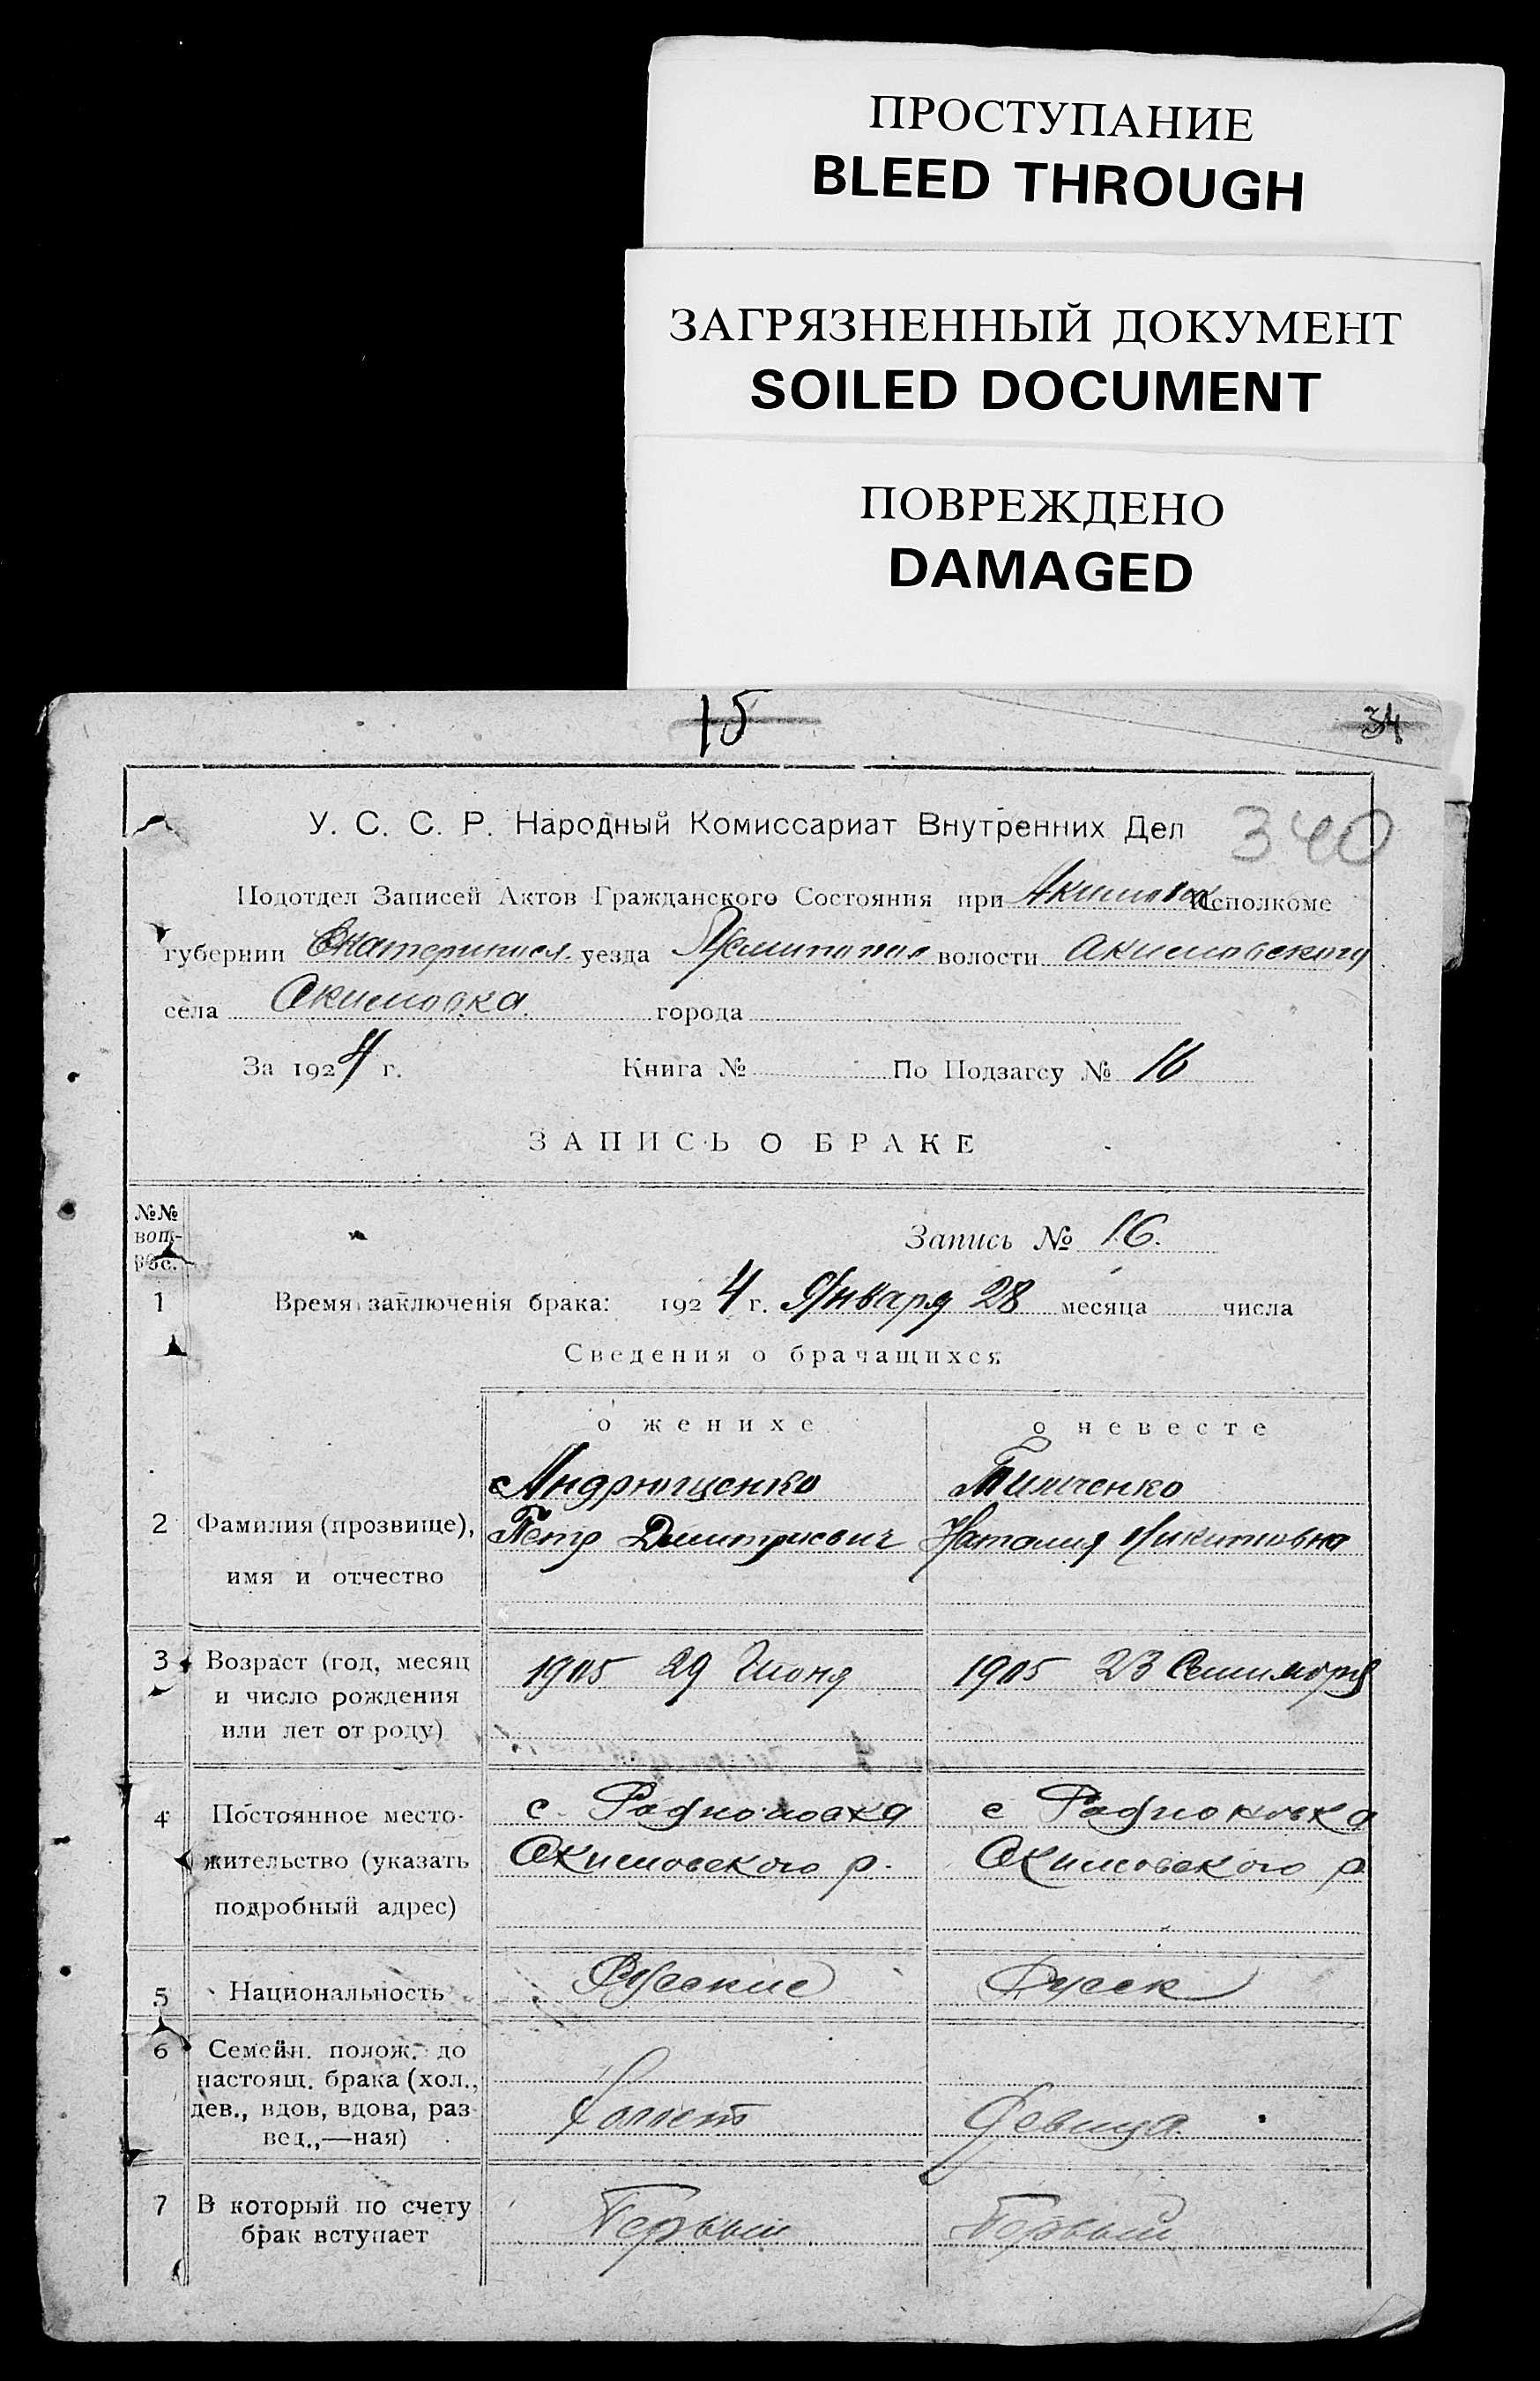 ПРОСТУПАНИЕ
BLEED THROUGH
ЗАГРЯЗНЕННЫЙ ДОКУМЕНТ
SOILED DOCUMENT
ПОВРЕЖДЕНО
DAMAGED
15
34
У. С. С. Р. Народный Комиссариат Внутренних Дел 340
Подотдел Записей Актов Гражданского Состояния при Исполкоме
губернии Екатериносл. уезда волости Акимовского
села Акимовка города
За 1924 г. Книга № По Подзагсу № 16
ЗАПИСЬ О БРАКЕ
№№
воп-
рос.
Запись № 16.
1 Время заключенія брака: 1924 г. Января 28 месяца числа
Сведения о брачащихся
о женихе о невесте
Андрющенко
2 Фамилия (прозвище),
имя и отчество
Петр Дмитриевич Наталия Никитовна
3 Возраст (год, месяц
и число рождения
или лет от роду)
1905 29 Июня 1905 23 Сентября
4 Постоянное место-
жительство (указать
подробный адрес)
с. Родионовка с Родионовка
Акимовского р. Акимовского р.
5 Национальность Русские Русск
6 Семейн. полож. до
настоящ. брака (хол.,
дев., вдов, вдова, раз-
вед.,—ная)
Холост Девица
7 В который по счету
брак вступает
Первый Первый